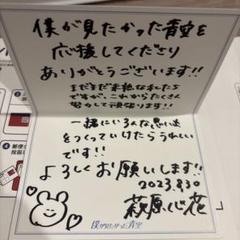 僕が見たかった青空を
応援してくださり
ありがとうございます!!
まだまだ未熟な私たち
ですが、これからたくさん
努力して頑張ります!!
一緒にいろんな思い出
をつくっていけたらうれしい
です!!
よろしくお願いします!!
2023.8.30
萩原心花
僕が見たかった青空